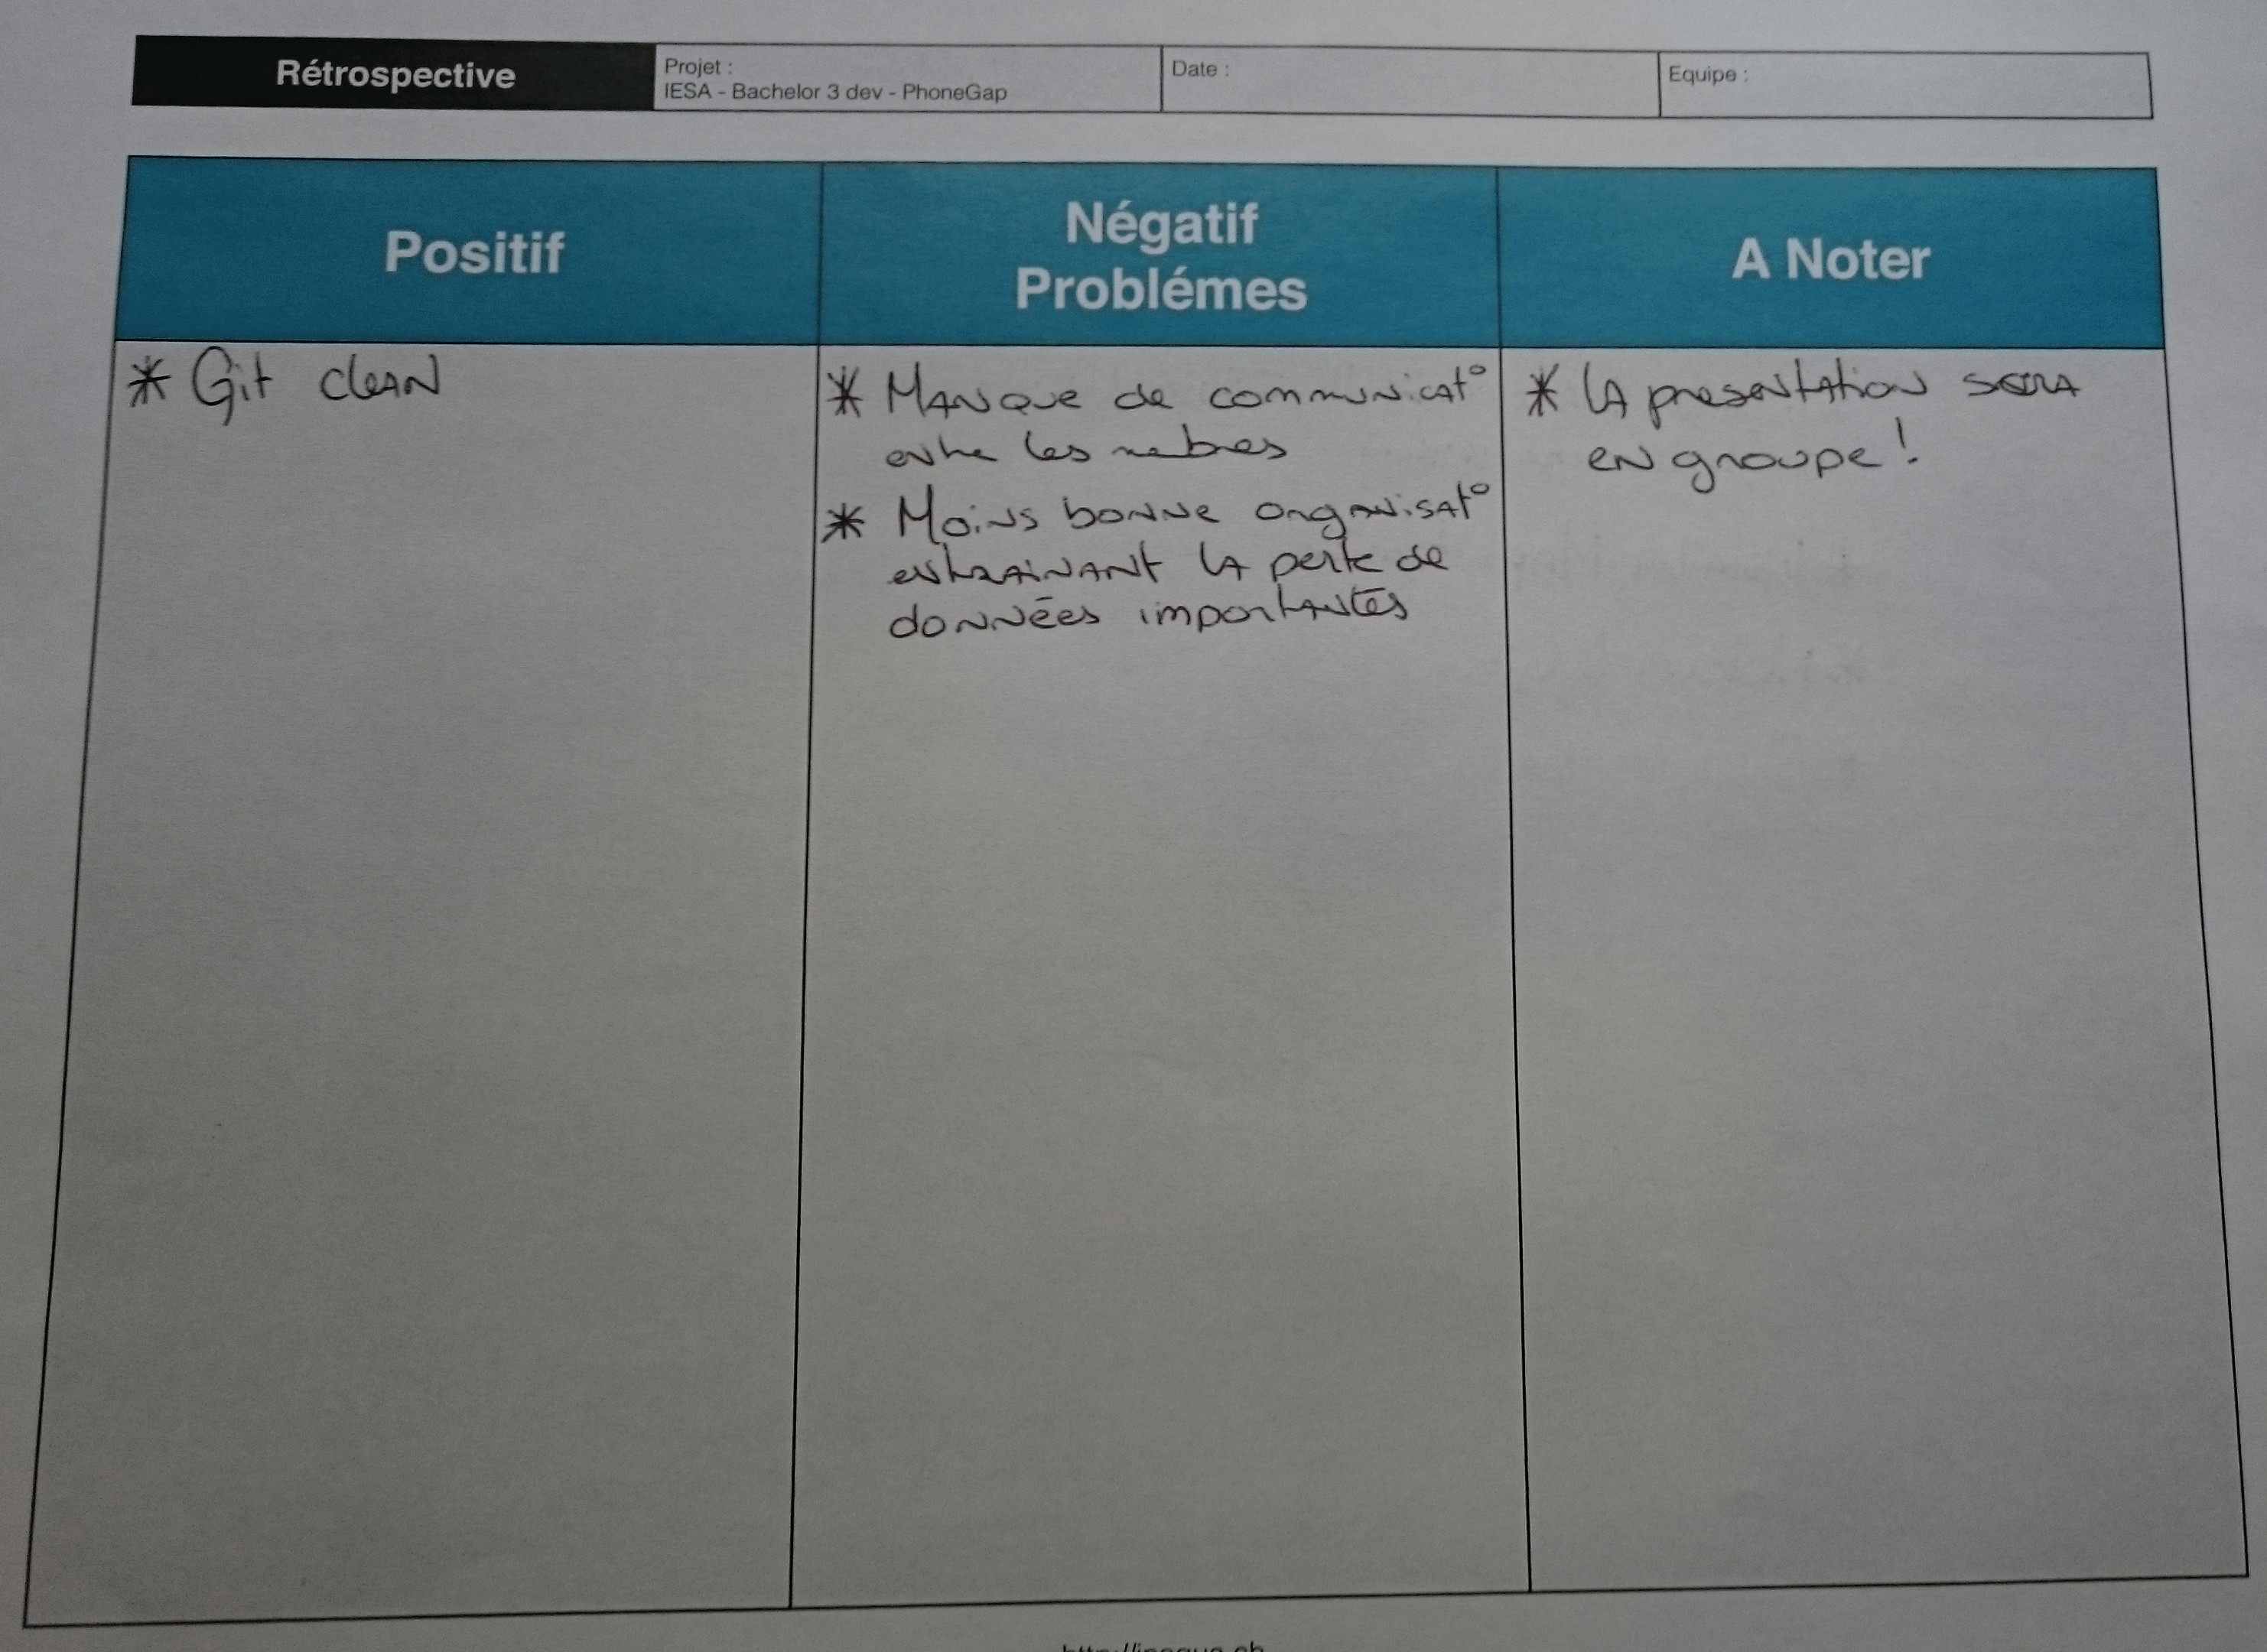 Rétrospective
Projet :
IESA - Bachelor 3 dev - PhoneGap
Date :
Equipe :
Positif
Négatif
Problémes
A Noter
* Git clean
* Manque de communicat°
entre les mebres
* Moins bonne organisat°
entrainant la perte de
données importantes
* La presentation sera
en groupe !